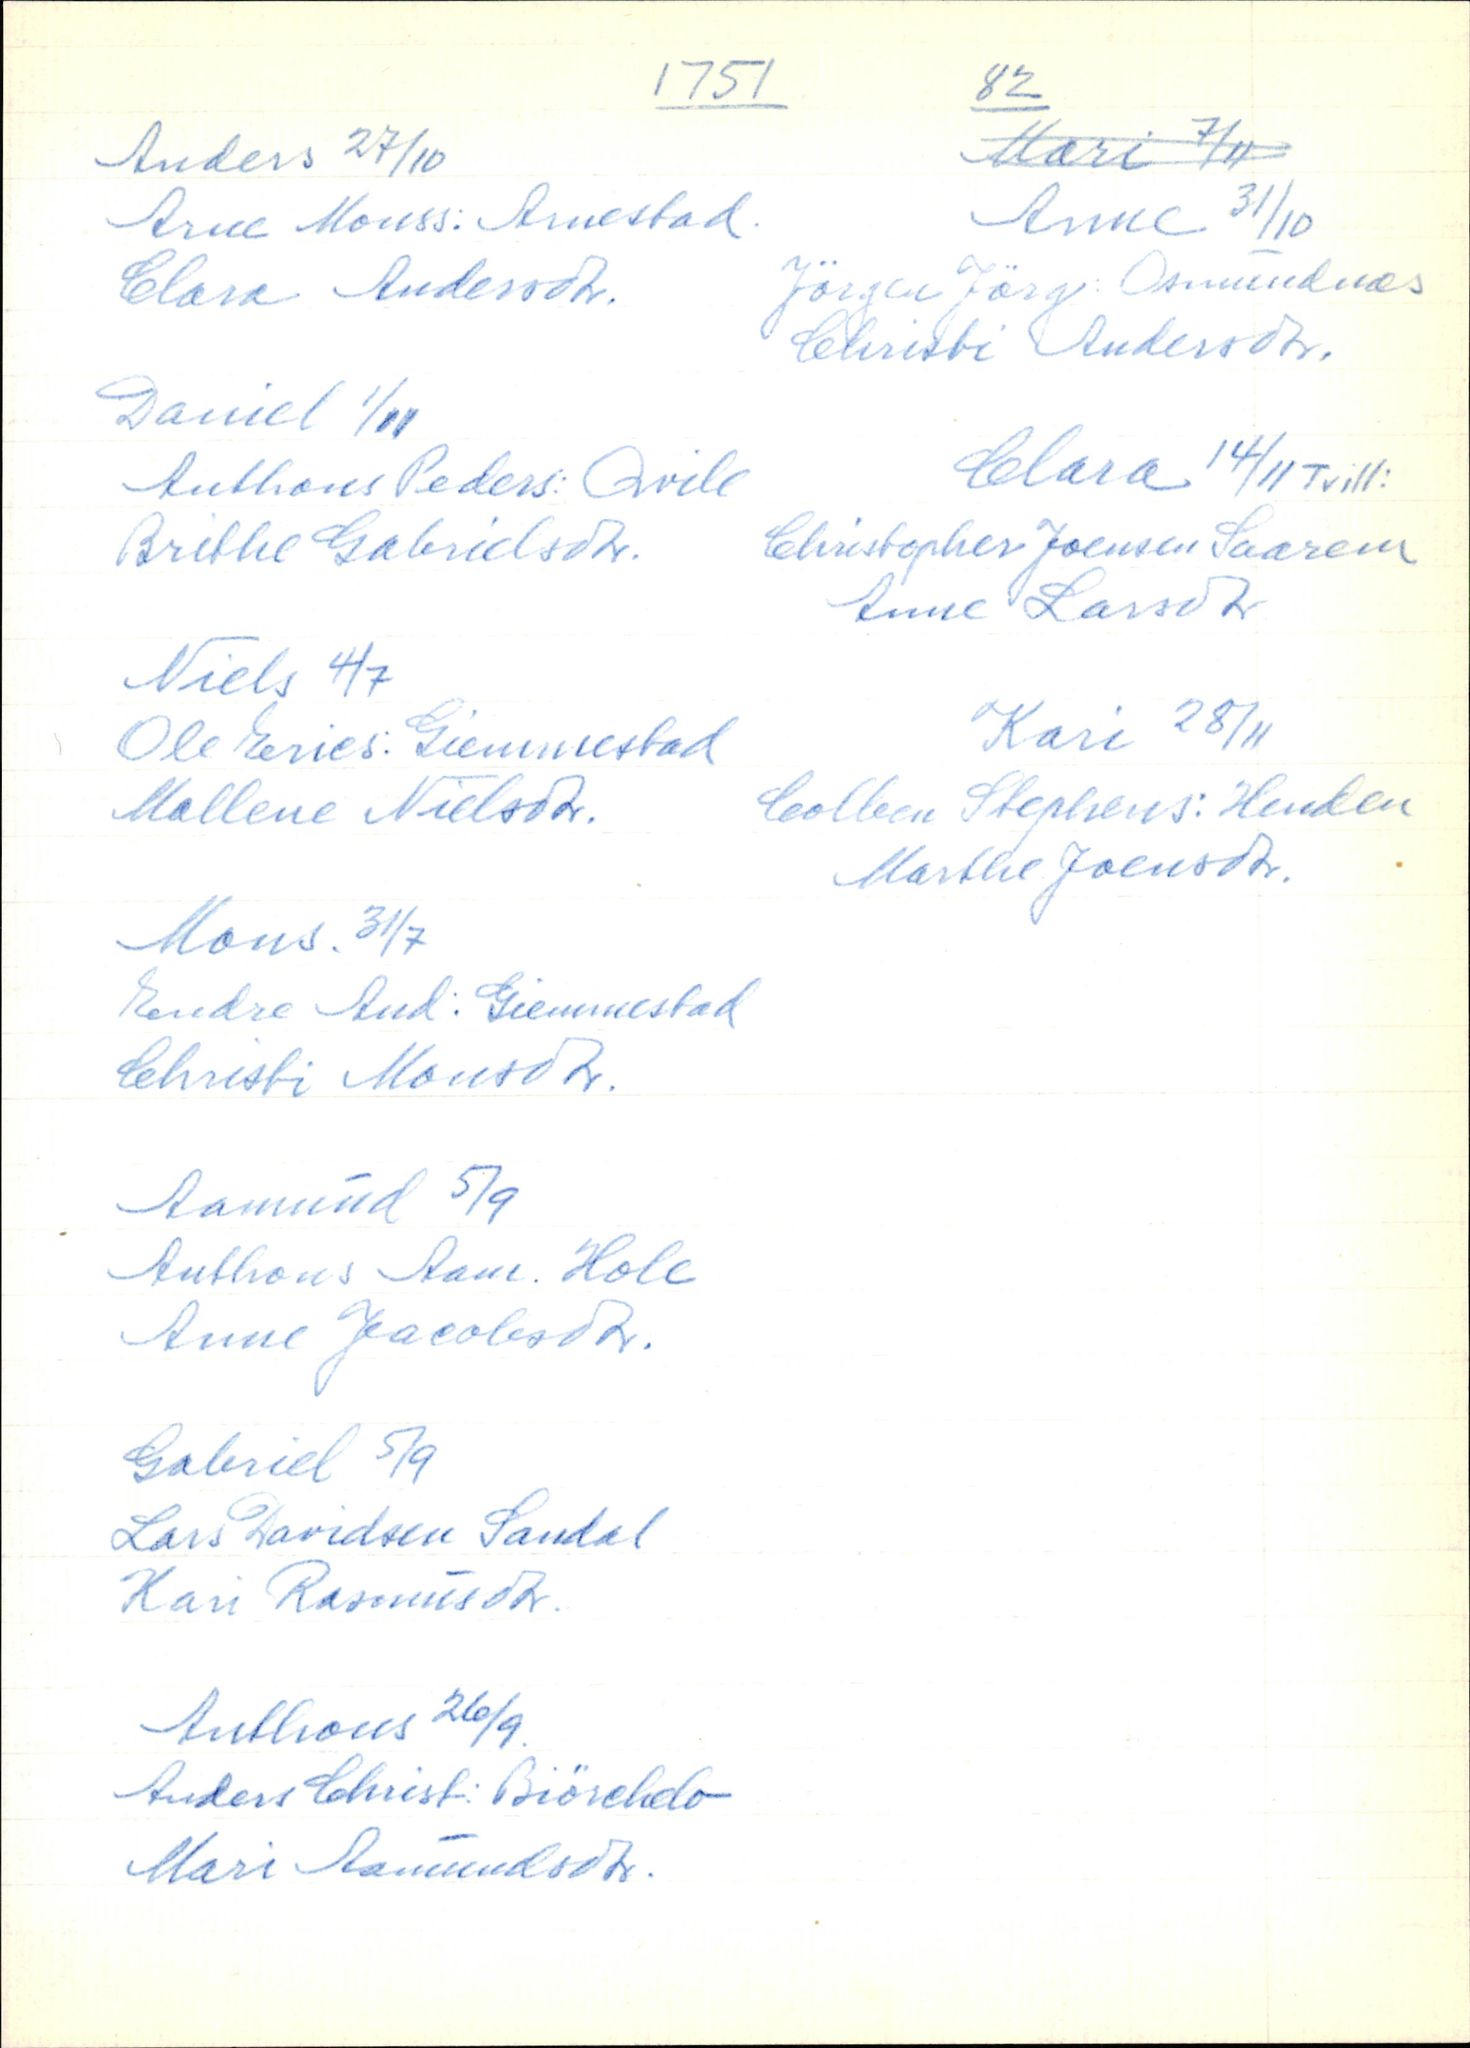 1751
82
Anders 27/10
Arne Monss: Arnestad.
Clara Andersdtr.
Daniel 1/11
Anthons Peders: Qvile
Brithe Gabrielsdtr.
Niels 4/7
Ole Erics: Giemmestad
Mallene Nielsdtr.
Mons. 31/7
Endre And: Giemmestad
Christi Monsdtr.
Aamund 5/9
Anthons Aam. Hole
Anne Jacobsdtr.
Gabriel 5/9
Lars Davidsen Sandal
Kari Rasmusdtr.
Anthons 26/9.
Anders Christ: Biörchelo
Mari Aamundsdtr.
Mari 7/11
Anne 31/10
Jörgen Jörg: Osmundnæs
Christi Andersdtr.
Clara 14/11 Tvill:
Christopher Joensen Saarem
Anne Larsdtr
Kari 28/11
Colben Stephens: Henden
Marthe Joensdtr.